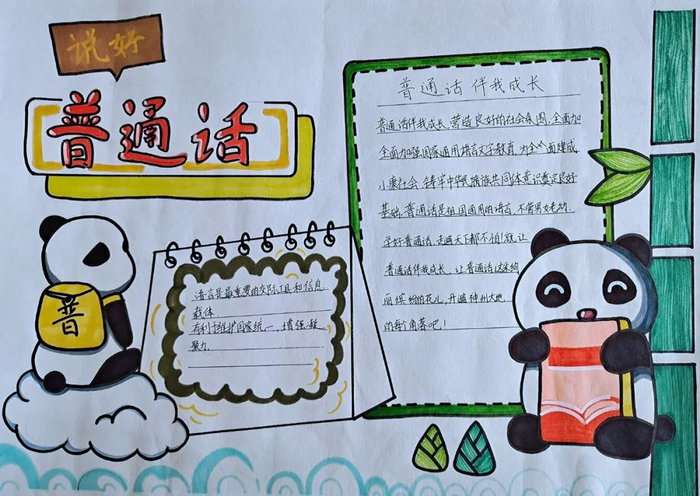 说好
普通话
普
普通话伴我成长
普通话伴我成长,营造良好的社会氛围,全面加
全面加强国家通用语言文字教育,为全面建成
小康社会,铸牢中华民族共同体意识奠定良好
基础,普通话是祖国通用的语言,不管男女老幼,
学好普通话,走遍天下都不怕!就让
普通话伴我成长,让普通话这朵绚
丽缤纷的花儿,开遍神州大地
的每个角落吧!
语言是最重要的交际工具和信息
载体
有利于维护国家统一,增强凝
聚力